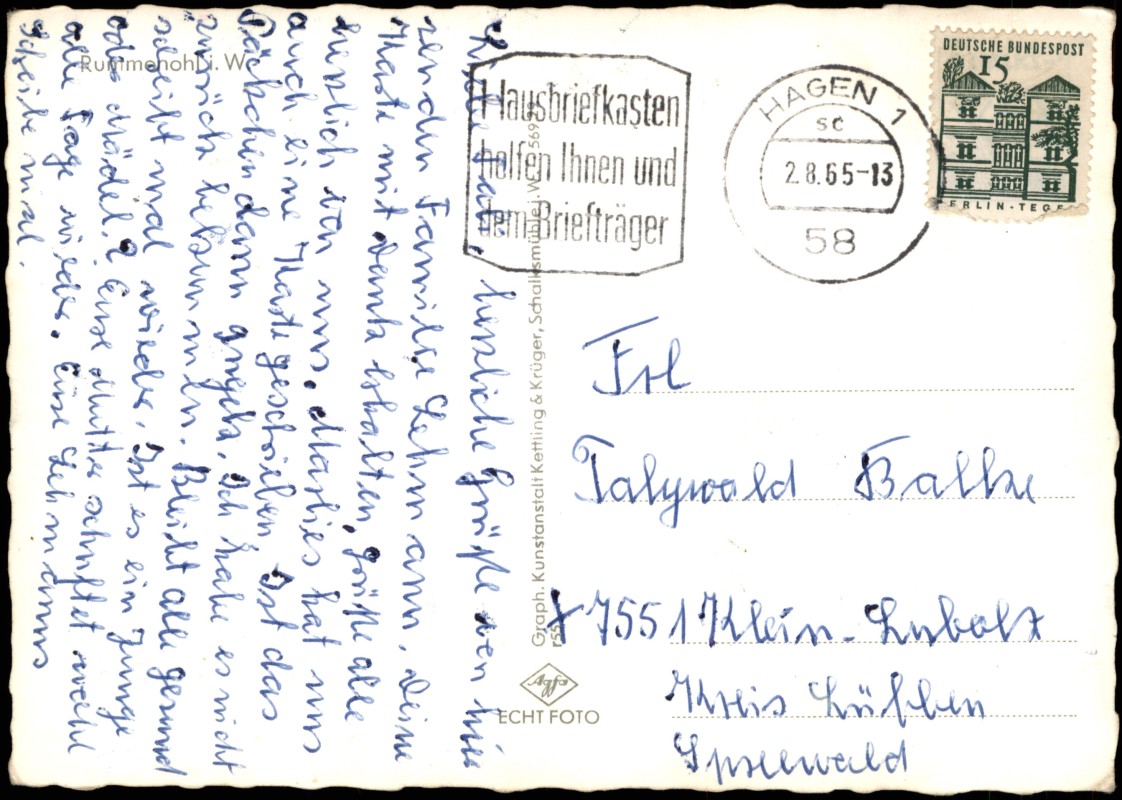 Rummenohl i. W.
Hausbriefkasten
helfen Ihnen und
dem Briefträger
HAGEN 1
sc
2.8.65-13
58
DEUTSCHE BUNDESPOST
15
BERLIN-TEGEL
herzliche Grüße von hier
senden Familie Lehmann, Deine
Karte mit Dank erhalten, grüße alle
herzlich von uns. Marlies hat uns
auch eine Karte geschrieben. Ist das
Päckchen dann Ich habe es nicht
zurück bekommen. Bleibt alle gesund
schreibt mal wieder. Ist es ein Junge
oder Mädel? Eure Mutter schuftet wohl
alle Tage wieder. Eure Lehmanns
Schreibe mal.
Graph. Kunstanstalt Kettling & Krüger, Schalksmühle i. W.
ECHT FOTO
Frl
Balke
x 7551 Klein-Lubolz
Kreis Lübben
Spreewald